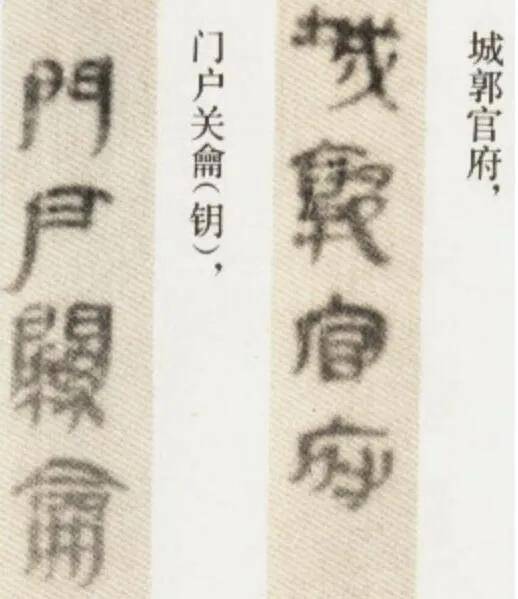 城郭官府，
城郭官府
门户关龠（钥），
門户關龠